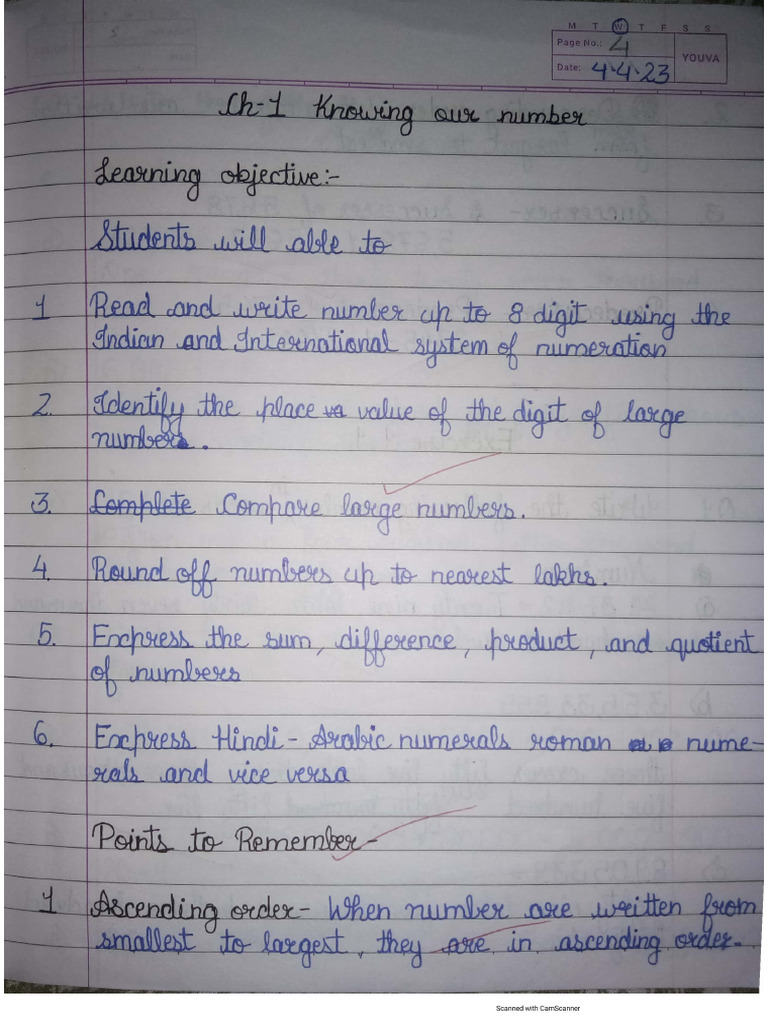 M T W T F S S
Page No.: 4
YOUVA
Date: 4.4.23
Ch-1 Knowing our number
Learning objective:-
Students will able to
1 Read and write number up to 8 digit using the
Indian and International system of numeration
2. Identify the place va value of the digit of large
numbers.
3. Complete Compare large numbers.
4. Round off numbers up to nearest lakhs.
5. Express the sum, difference, product, and quotient
of numbers
6. Express Hindi - Arabic numerals roman nume-
rals and vice versa
Points to Remember-
1 Ascending order- When number are written from
smallest to largest, they are in ascending order.
Scanned with CamScanner